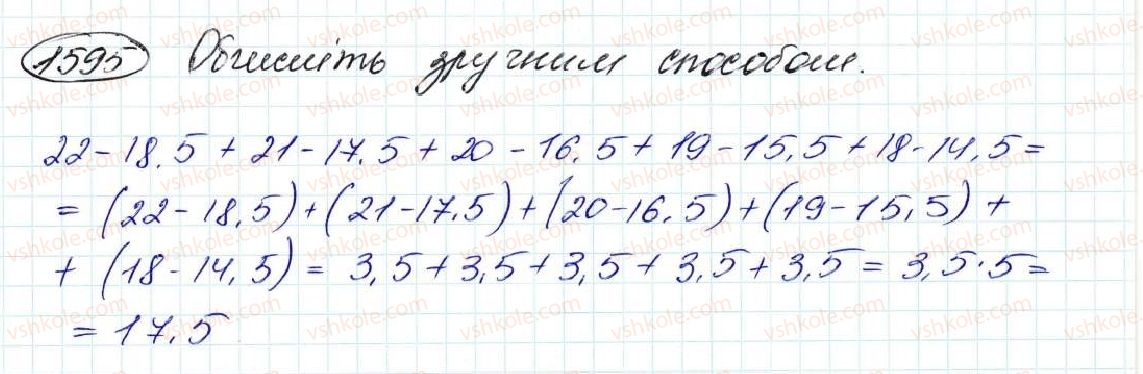 1595 Обчисліть зручним способом.
22 - 18,5 + 21 - 17,5 + 20 - 16,5 + 19 - 15,5 + 18 - 14,5 =
= (22 - 18,5) + (21 - 17,5) + (20 - 16,5) + (19 - 15,5) +
+ (18 - 14,5) = 3,5 + 3,5 + 3,5 + 3,5 + 3,5 = 3,5 · 5 =
= 17,5